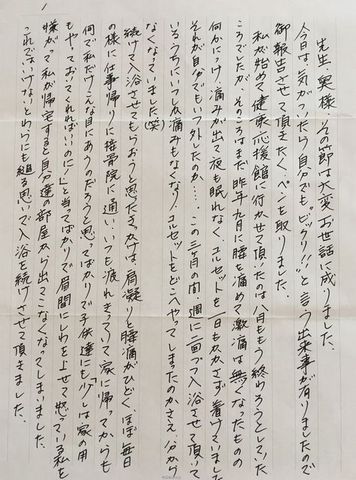 先生、奥様、その節は大変お世話に成りました。
今日は、気がついたら自分でも〝ビックリ!!〟と言う出来事が有りましたので
御報告させて頂きたくペンを取りました。
私が始めて健康応援館に行かせて頂いたのは八月ももう終わろうとしていた
ころでしたが、そのころはまだ昨年九月に腰を痛めて激痛は無くなったものの
何かにつけ、痛みが出て夜も眠れなく、コルセットを一日もかかさず着けていました。
それが自分でもいつ外したのか…。この三ヶ月の間、週に二回づつ入浴させて頂いて
いるうちにいつしか痛みもなくなり、コルセットをどこへやってしまったのかさえ分から
なくなっていました(笑)
続けて入浴させてもらおうと思ったきっかけは、肩凝りと腰痛がひどく、ほぼ毎日
の様に仕事帰りに接骨院に通い、いつも疲れきっていて家に帰ってからも
何で私だけこんな目にあうのだろうと思ってばかりで子供達にも「少しは家の用
もやっておいてくれればいいのに!」と当てばかりで眉間にしわを上せて怒っている私を
嫌がって私が帰宅すると自分達の部屋から出てこなくなってしまいました。
これではいけないとわらにも縋る思いで入浴を続けさせて頂きました。